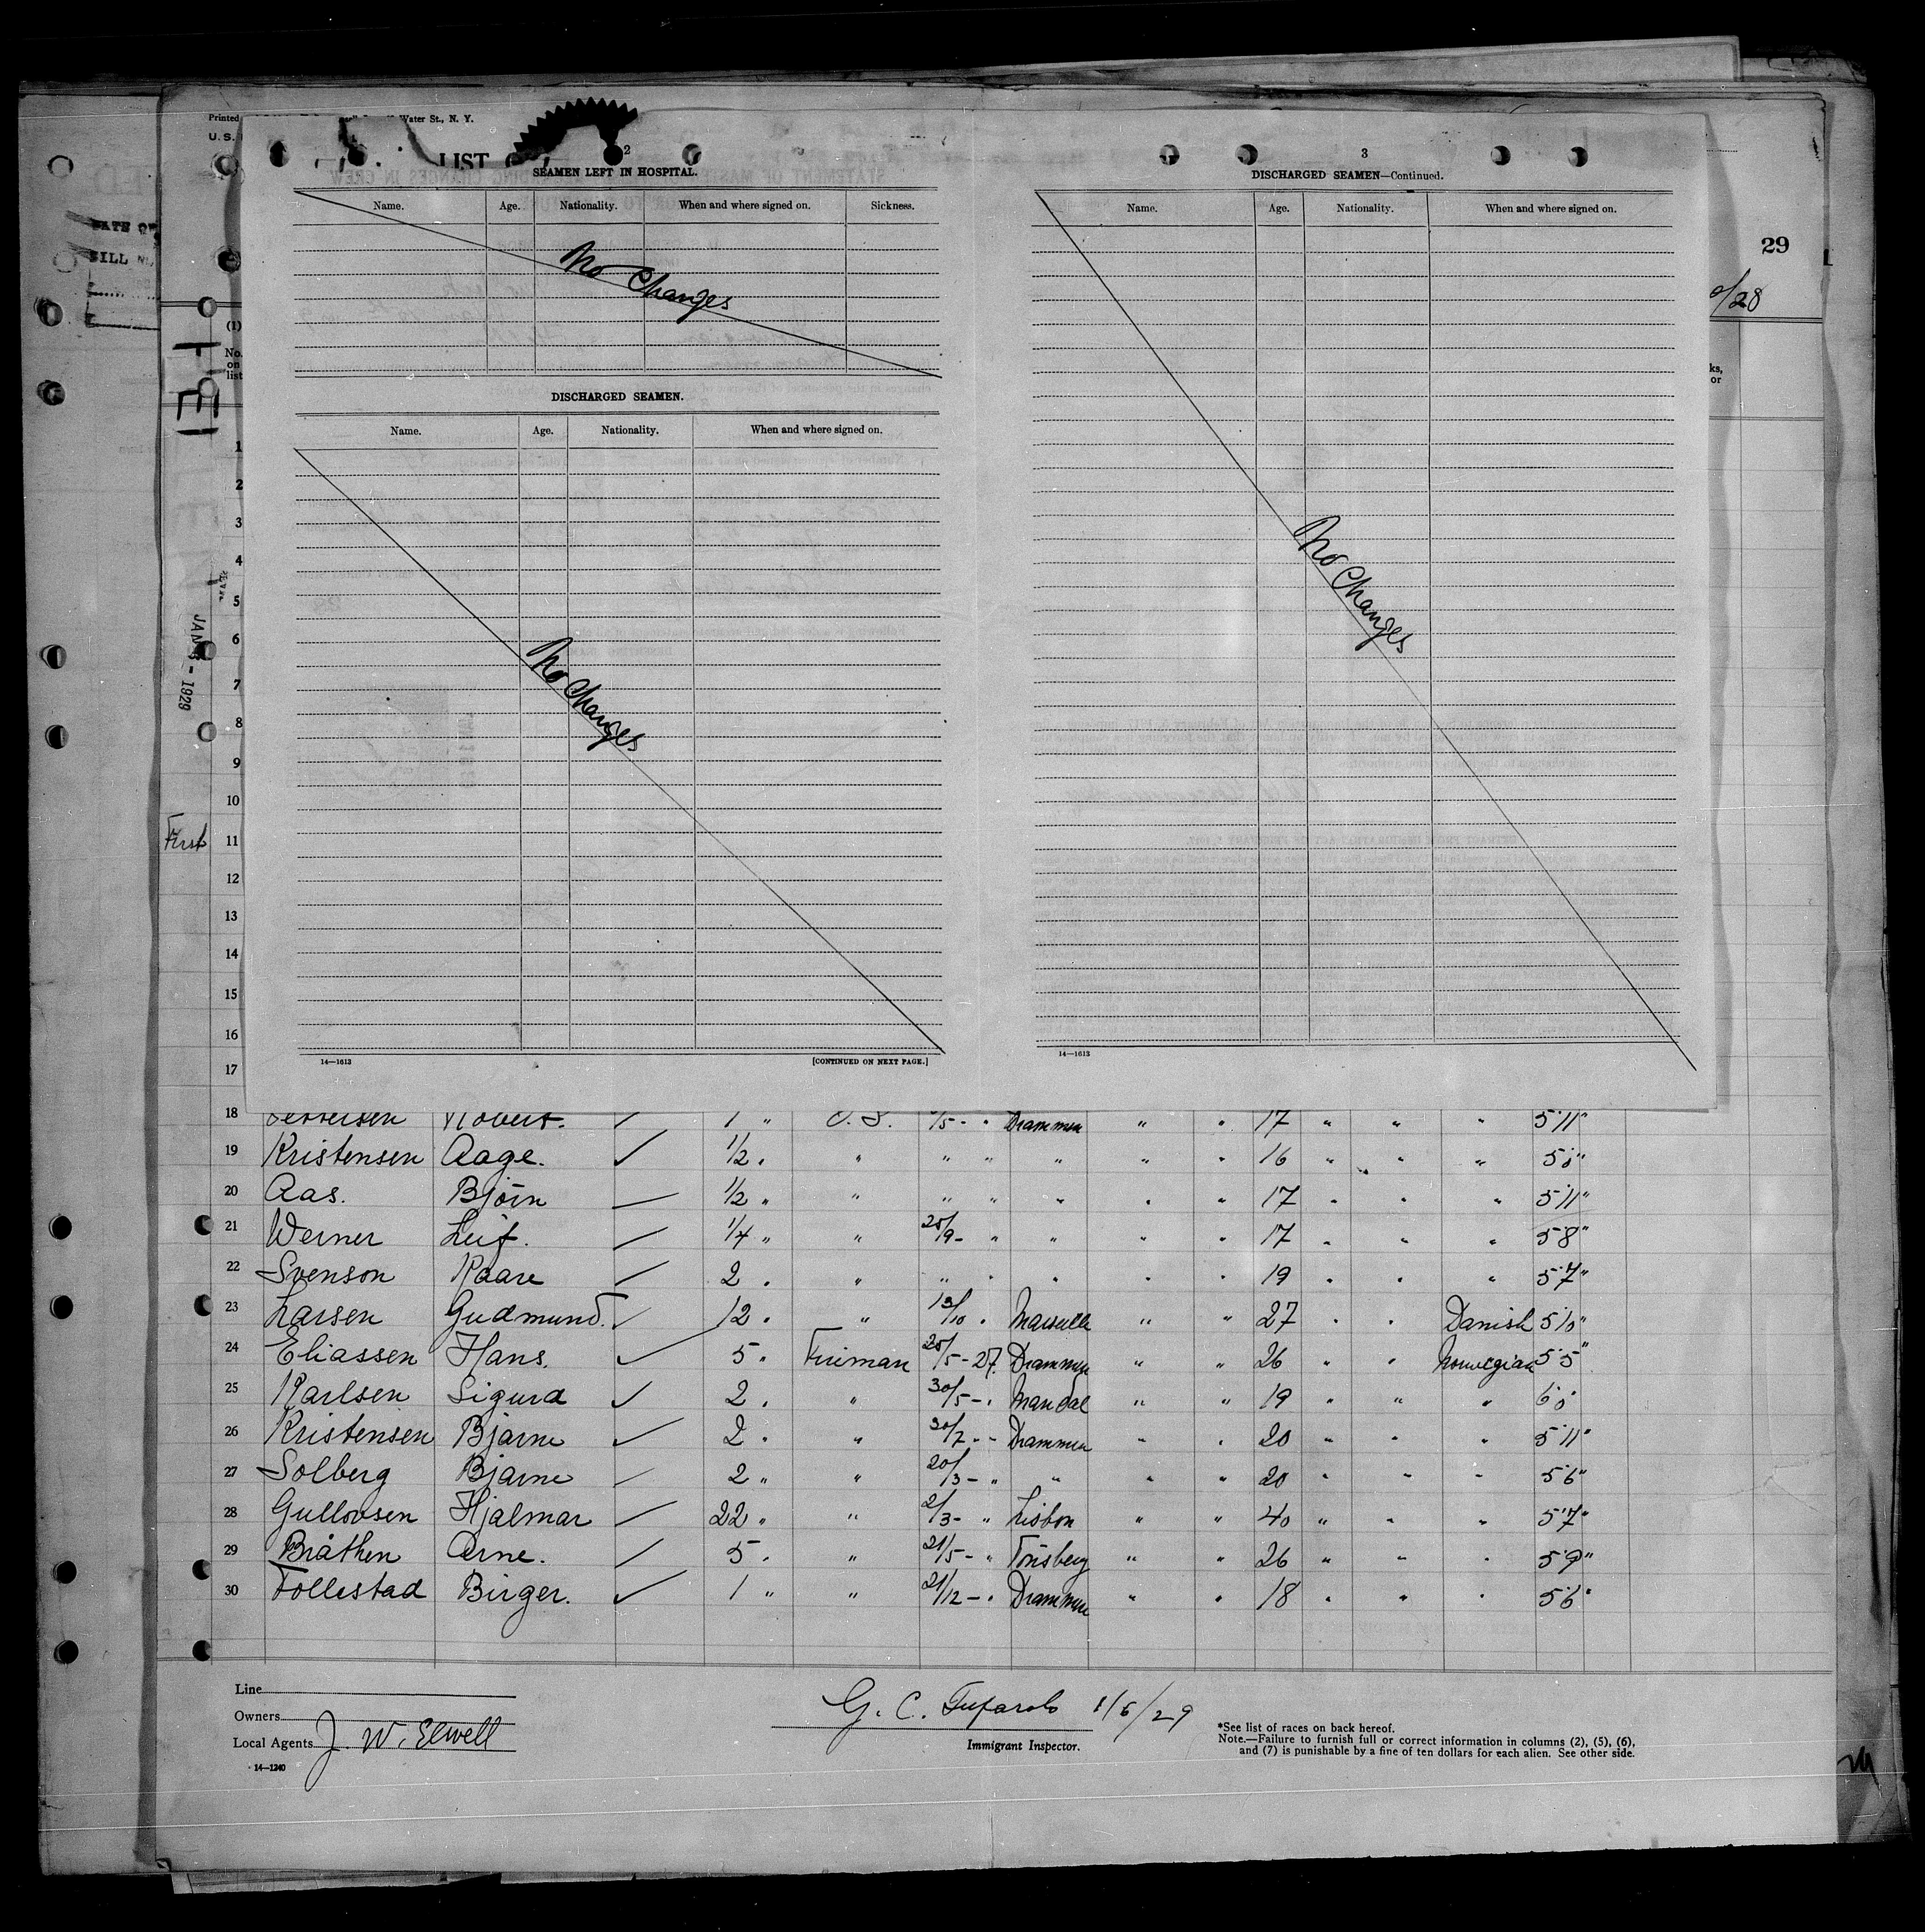 Printed
Water St., N. Y.
U. S.
LIST
2
SEAMEN LEFT IN HOSPITAL.
Name. Age. Nationality. When and where signed on. Sickness.
No Changes
DISCHARGED SEAMEN.
Name. Age. Nationality. When and where signed on.
No Changes
14—1613 [CONTINUED ON NEXT PAGE.]
3
DISCHARGED SEAMEN—Continued.
Name. Age. Nationality. When and where signed on.
No Changes
14—1613
29
/28
ks,
or
(1)
No.
on
list
JAN - 1929
First
1
2
3
4
5
6
7
8
9
10
11
12
13
14
15
16
17
18 Robert. 1 " O. S. /5 - " Drammen " " 17 " " " 5'11"
19 Kristensen Aage. ✓ 1/2 " " " " " " " 16 " " " 5'
20 Aas. Björn 1/2 " " " " " " " 17 " " " 5'11"
21 Werner Leif. 1/4 " " 25/9 - " " " " 17 " " " 5'8"
22 Svenson Kaare 2 " " " " " " " 19 " " " 5'7"
23 Larsen Gudmund. ✓ 12 " " 13/10 " Marseille " " 27 " " Danish 5'10"
24 Eliassen Hans. ✓ 5 " Fireman 25/5 - 27 Drammen " " 26 " " Norwegian 5'5"
25 Karlsen Sigurd ✓ 2 " " 30/5 - " Mandal " " 19 " " " 6'0"
26 Kristensen Bjarne ✓ 2 " " 30/7 - " Drammen " " 20 " " " 5'11"
27 Solberg Bjarne 2 " " 20/3 - " " " " 20 " " " 5'6"
28 Gullovsen Hjalmar 22 " " 2/3 - " Lisbon " " 40 " " " 5'7"
29 Bråthen Arne. 5 " " 21/5 - " Tönsberg " " 26 " " " 5'9"
30 Follestad Birger. ✓ 1 " " 21/12 - " Drammen " " 18 " " " 5'6"
Line
Owners
Local Agents J. W. Elwell
14—1240
G. C. 1/5/29
Immigrant Inspector.
*See list of races on back hereof.
Note.—Failure to furnish full or correct information in columns (2), (5), (6),
and (7) is punishable by a fine of ten dollars for each alien. See other side.